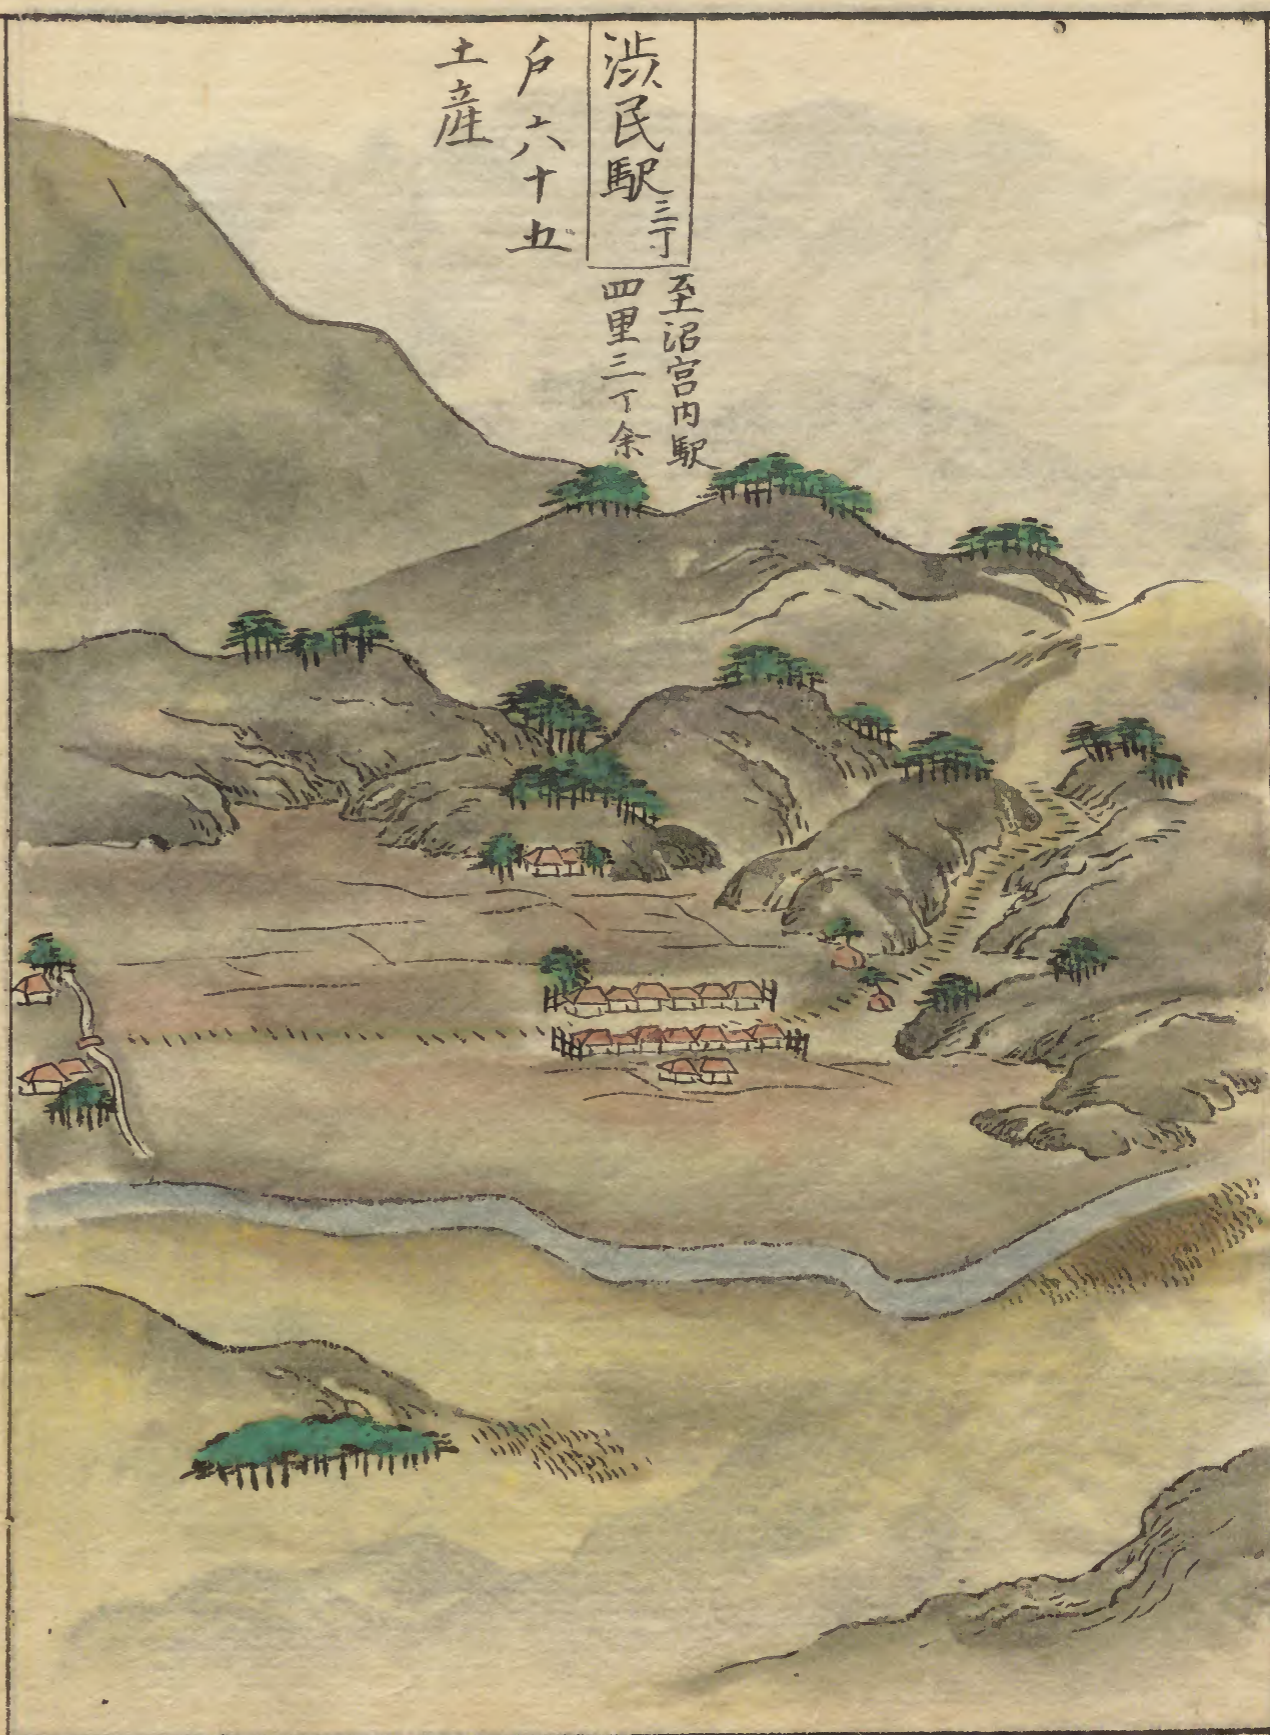 渋民駅 三丁
至沼宮内駅
四里三丁余
戸六十五
土産